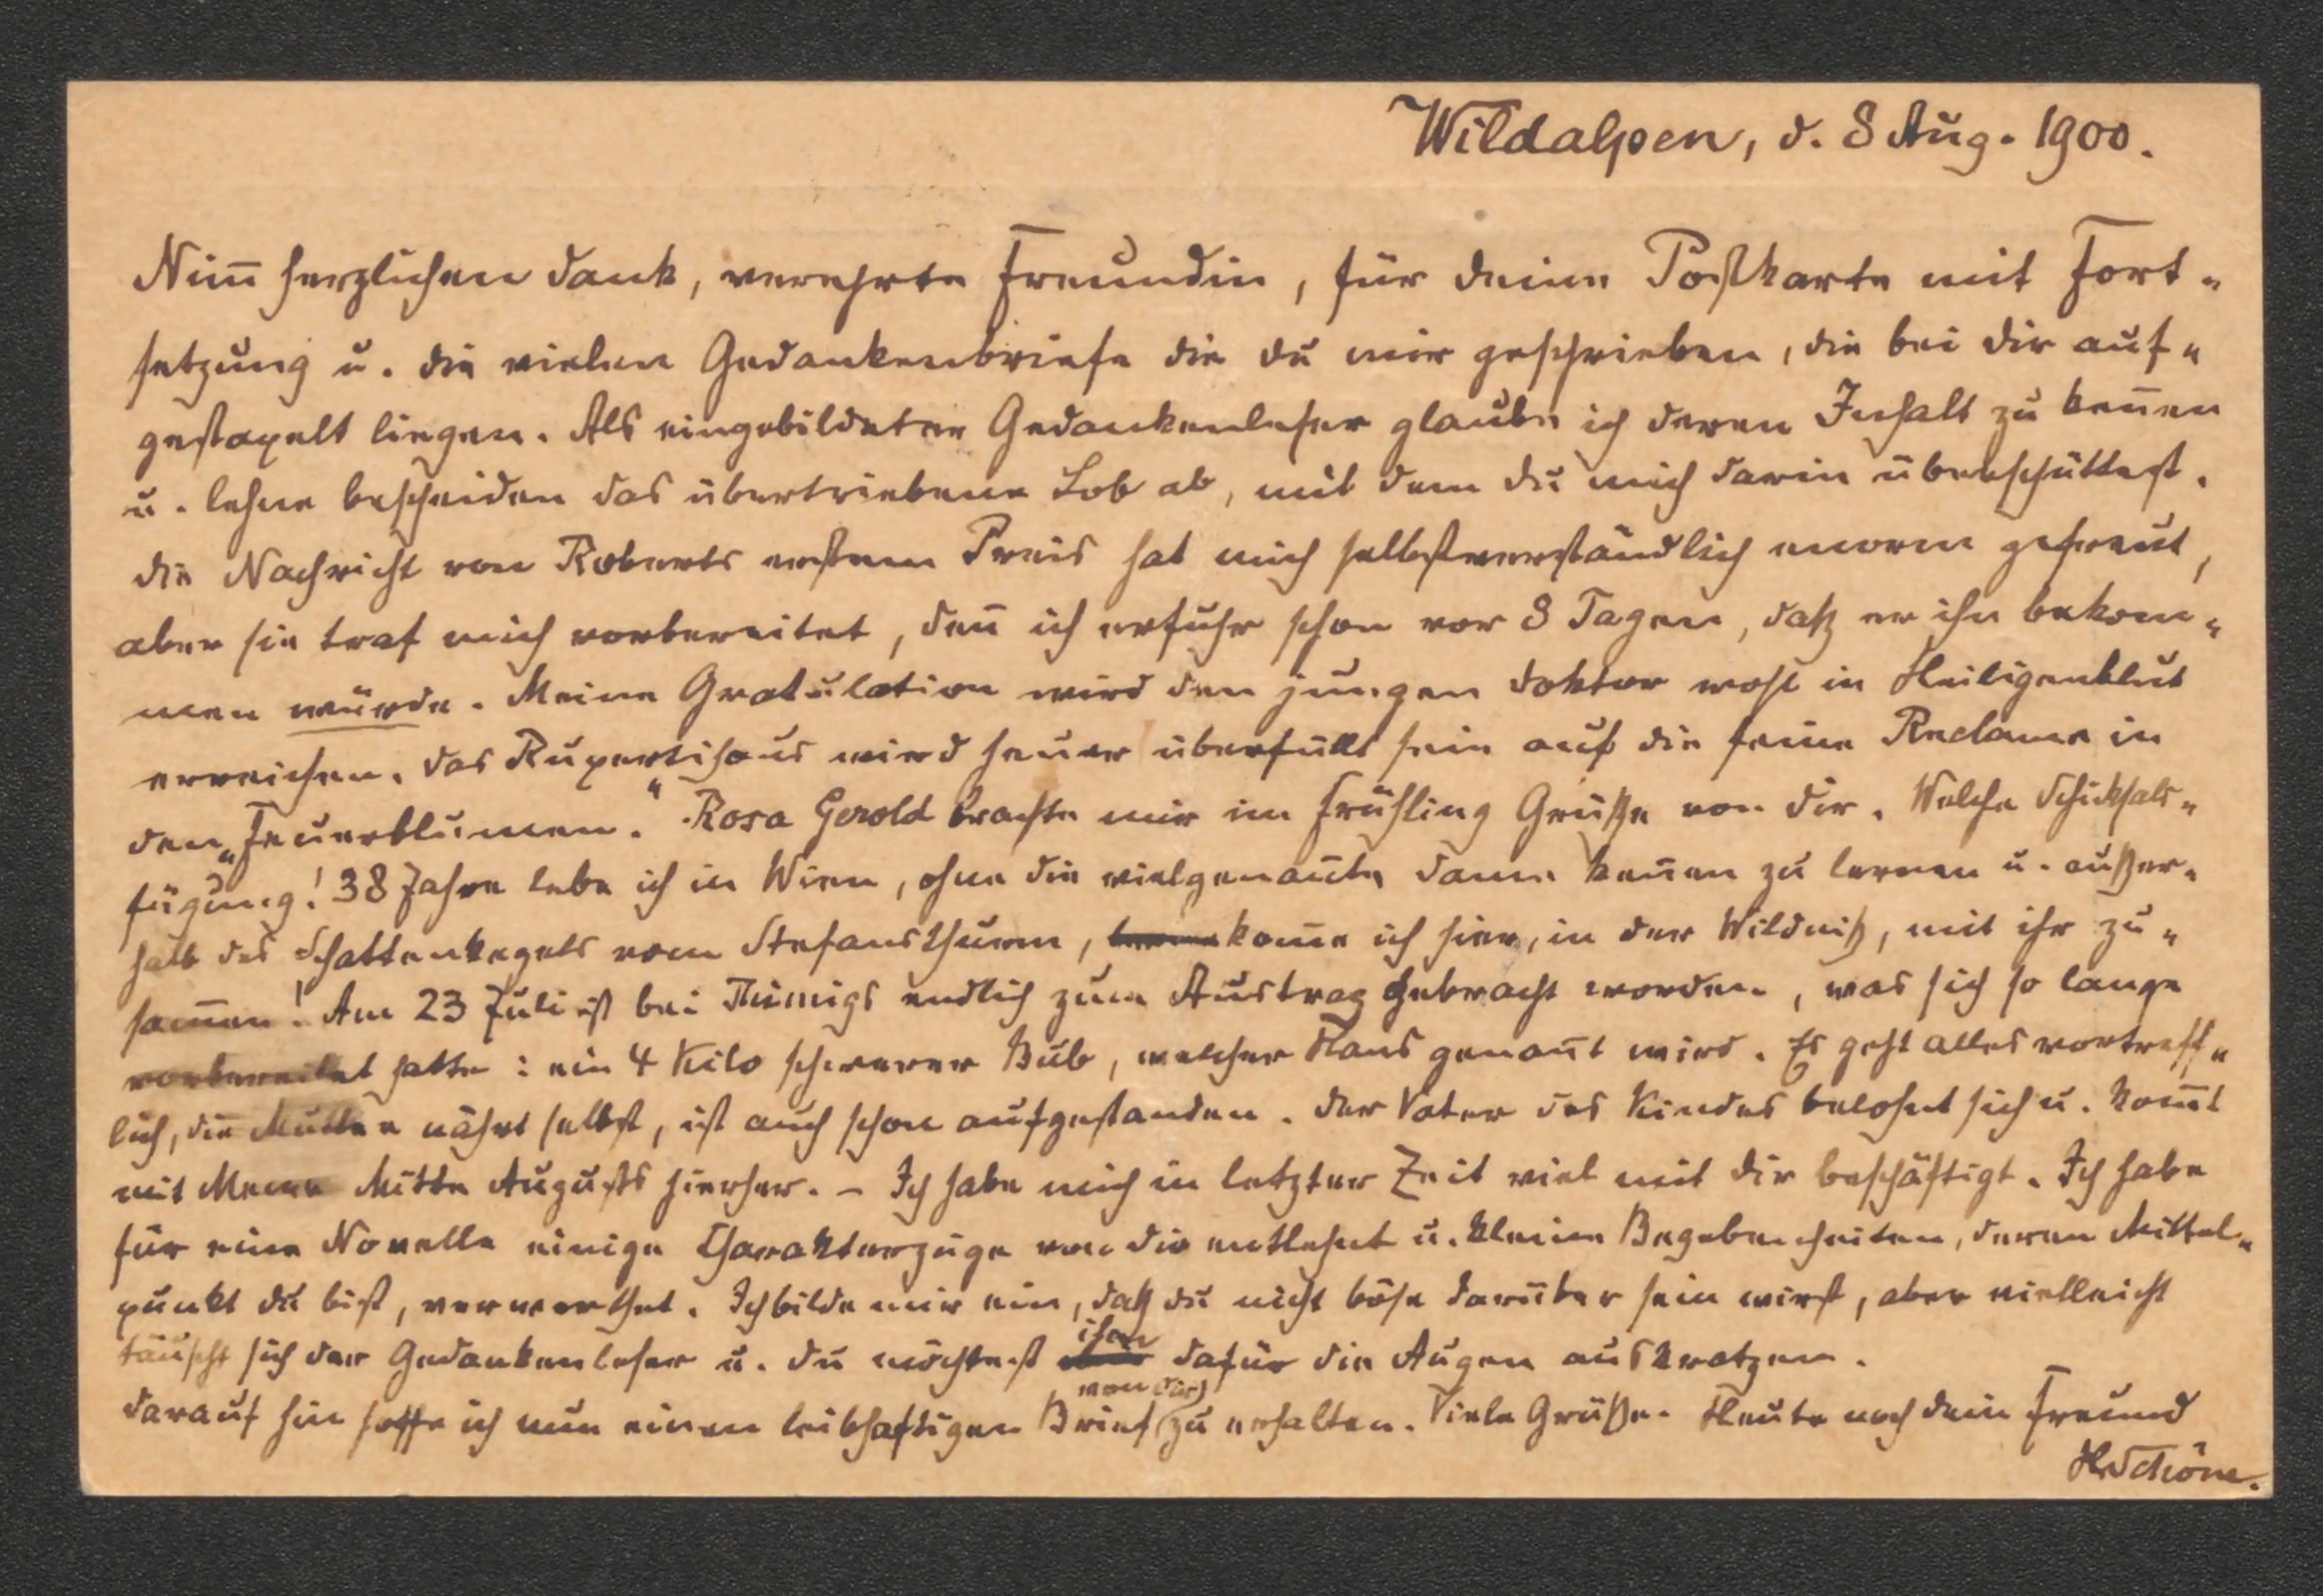 Wildalpen, d. 8 Aug. 1900.
Nim̄ herzlichen Dank, verehrte Freundin, für deine Postkarte mit Fort-
setzung u. die vielen Gedankenbriefe die du mir geschrieben, die bei dir auf-
gestapelt liegen. Als eingebildeter Gedankenleser glaube ich deren Inhalt zu ken̄en
u. lehne bescheiden das übertriebene Lob ab, mit dem du mich darin überschüttest.
Die Nachricht von Roberts erstem Preis hat mich selbstverständlich enorm gefreut,
aber sie traf mich vorbereitet, den̄ ich erfuhr schon vor 8 Tagen, daß er ihn bekom-
men würde. Meine Gratulation wird den jungen Doktor wohl in Heiligenblut
erreichen. Das Rupertihaus wird heuer überfüllt sein auf die feine Reclame in
den „Feuerblumen." Rosa Gerold brachte mir im Frühling Grüße von dir. Welche Schicksals-
fügung! 38 Jahre lebe ich in Wien, ohne die vielgenan̄te Dame ken̄en zu lernen u. außer-
halb des Schattenkegels vom Stefansthurm, kom̄e ich hier, in der Wildniß, mit ihr zu-
sam̄en! Am 23 Juli ist bei Thimigs endlich zum Austrag gebracht worden, was sich so lange
vorbereitet hatte: ein 4 Kilo schwerer Bub, welcher Hans genan̄t wird. Es geht alles vortreff-
lich, die Mutter nährt selbst, ist auch schon aufgestanden. Der Vater des Kindes belohnt sich u. kom̄t
mit Mitte Augusts hierher. – Ich habe mich in letzter Zeit viel mit dir beschäftigt. Ich habe
für eine Novelle einige Charakterzüge von dir entlehnt u. kleine Begebenheiten, deren Mittel-
punkt du bist, verwerthet. Ich bilde mir ein, daß du nicht böse darüber sein wirst, aber vielleicht
täuscht sich der Gedankenleser u. du möchtest ihm dafür die Augen auskratzen.
Darauf hin hoffe ich nun einen leibhaftigen Brief von dir zu erhalten. Viele Grüße. Heute noch dein Freund
HSchöne.